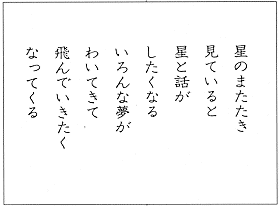 星のまたたき
見ていると
星と話が
したくなる
いろんな夢が
わいてきて
飛んでいきたく
なってくる